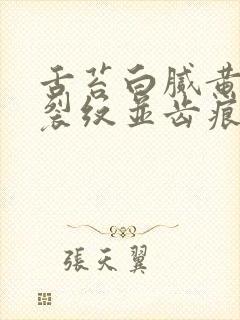 舌苔白膩黄
裂纹並齿痕
張天翼